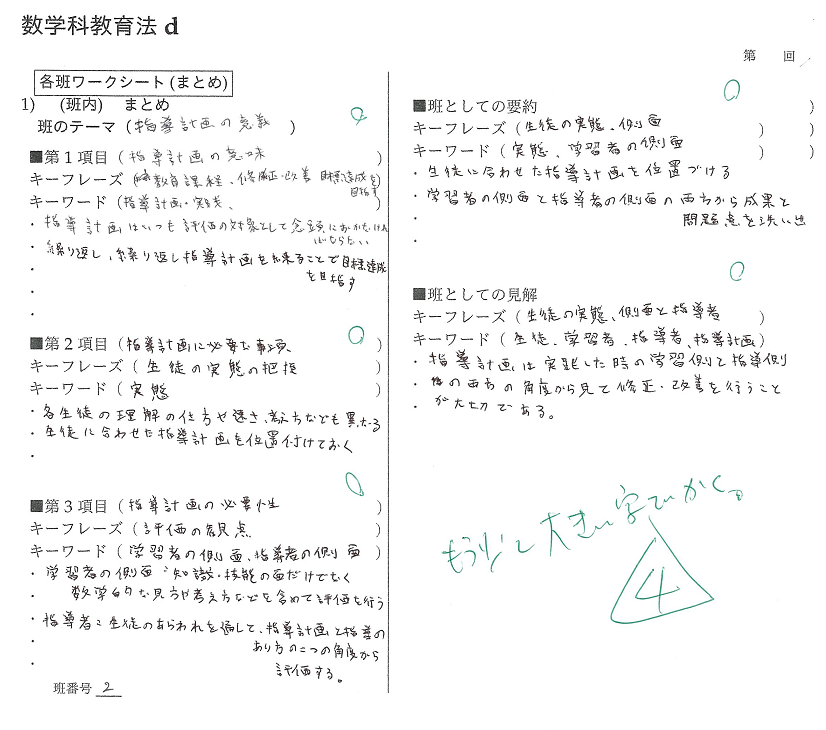 数学科教育法 d
第 回
各班ワークシート (まとめ)
1) (班内) まとめ
班のテーマ (指導計画の意義)
■第1項目 (指導計画の意味)
キーフレーズ (教育課程、修正・改善 目標達成を目指す)
キーワード (指導計画・実践、)
・指導計画はいつも評価の対象として念頭におかなければならない
・繰り返し、繰り返し指導計画を練ることで目標達成を目指す
・
・
・
■第2項目 (指導計画に必要な事項)
キーフレーズ (生徒の実態の把握)
キーワード (実態)
・各生徒の理解の仕方や速さ、考え方なども異なる
・生徒に合わせた指導計画を位置付けておく
・
■第3項目 (指導計画の必要性)
キーフレーズ (評価の観点)
キーワード (学習者の側面、指導者の側面)
・学習者の側面:知識・技能の面だけでなく
数学的な見方や考え方などを含めて評価を行う
・指導者:生徒のあらわれを通して、指導計画と指導の
・あり方の二つの角度から
・評価する。
班番号 2
■班としての要約 )
キーフレーズ (生徒の実態、側面 ) )
キーワード (実態、学習者の側面 ) )
・生徒に合わせた指導計画を位置づける
・学習者の側面と指導者の側面の両方から成果と
・問題点を洗い出
・
■班としての見解
キーフレーズ (生徒の実態、側面と指導者 )
キーワード (生徒、学習者、指導者、指導計画)
・指導計画は実践した時の学習側と指導側
・の両方の角度から見て修正・改善を行うこと
・が大切である。
もう少し大きい字でかく。
4